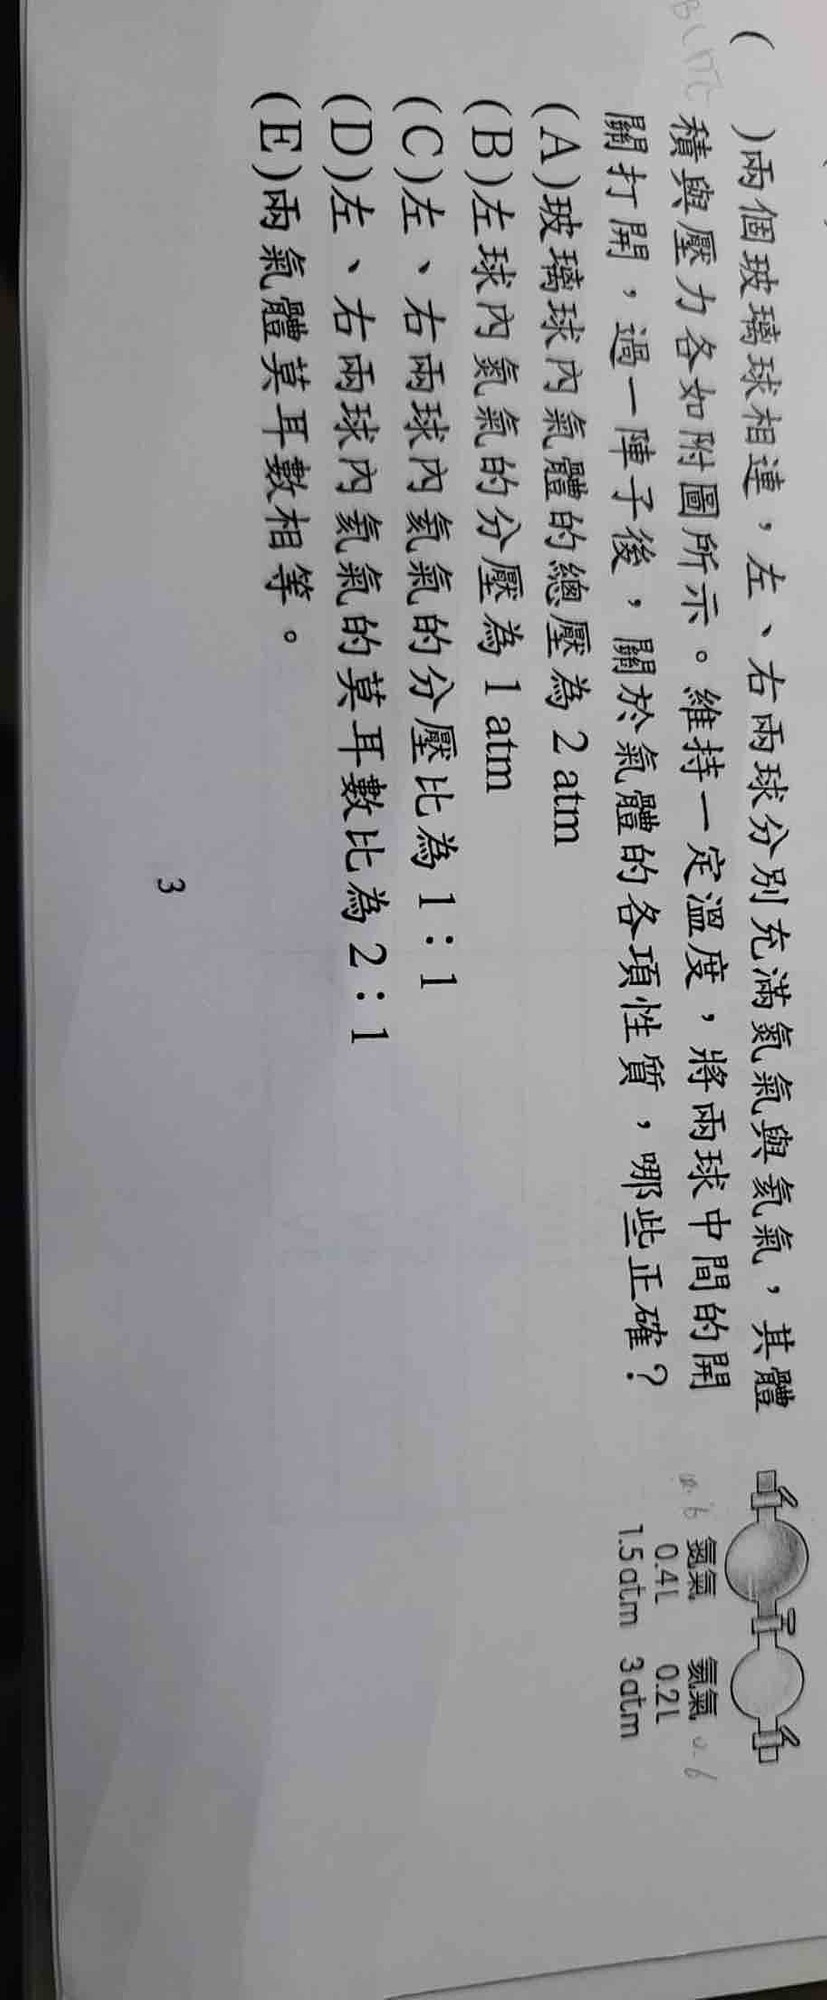 (　)兩個玻璃球相連，左、右兩球分別充滿氮氣與氦氣，其體
積與壓力各如附圖所示。維持一定溫度，將兩球中間的開
關打開，過一陣子後，關於氣體的各項性質，哪些正確？
(A)玻璃球內氣體的總壓為 2 atm
(B)左球內氮氣的分壓為 1 atm
(C)左、右兩球內氦氣的分壓比為 1：1
(D)左、右兩球內氦氣的莫耳數比為 2：1
(E)兩氣體莫耳數相等。
氮氣 氦氣
0.4L 0.2L
1.5atm 3atm
0.6
3